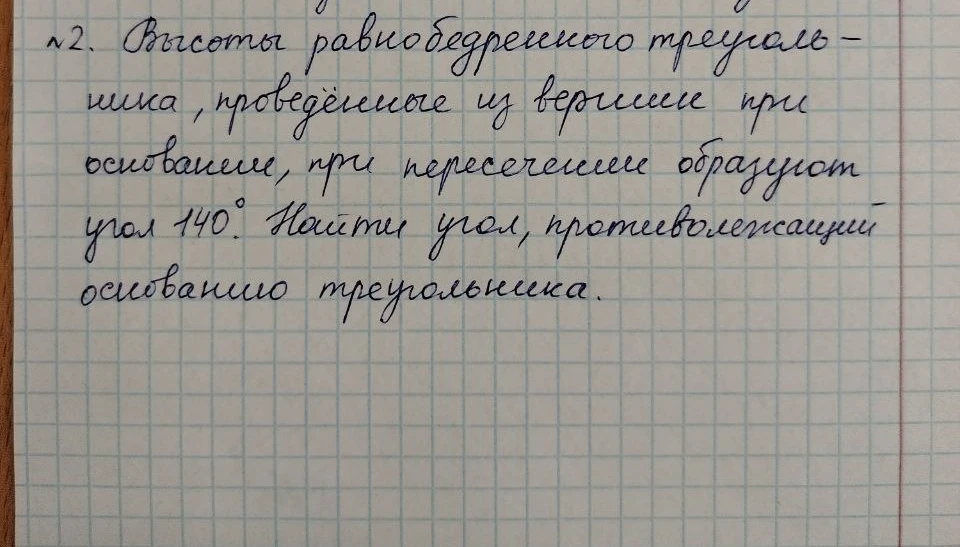 №2. Высоты равнобедренного треуголь-
ника, проведённые из вершин при
основании, при пересечении образуют
угол 140°. Найти угол, противолежащий
основанию треугольника.